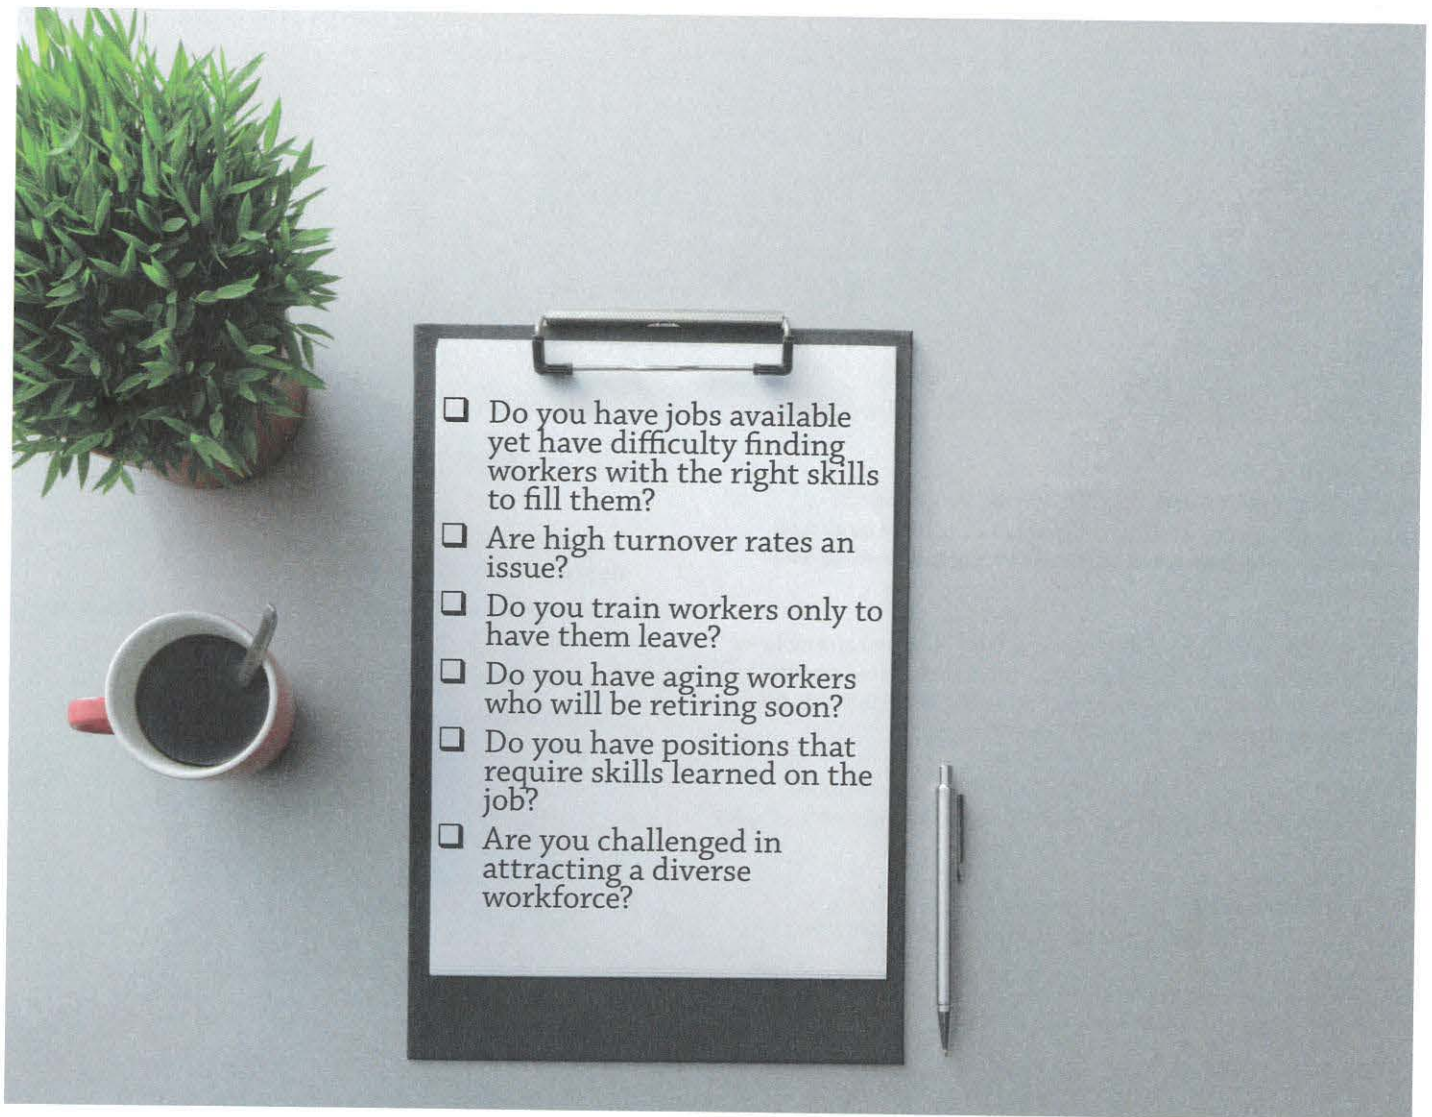 ❑ Do you have jobs available
yet have difficulty finding
workers with the right skills
to fill them?
❑ Are high turnover rates an
issue?
❑ Do you train workers only to
have them leave?
❑ Do you have aging workers
who will be retiring soon?
❑ Do you have positions that
require skills learned on the
job?
❑ Are you challenged in
attracting a diverse
workforce?